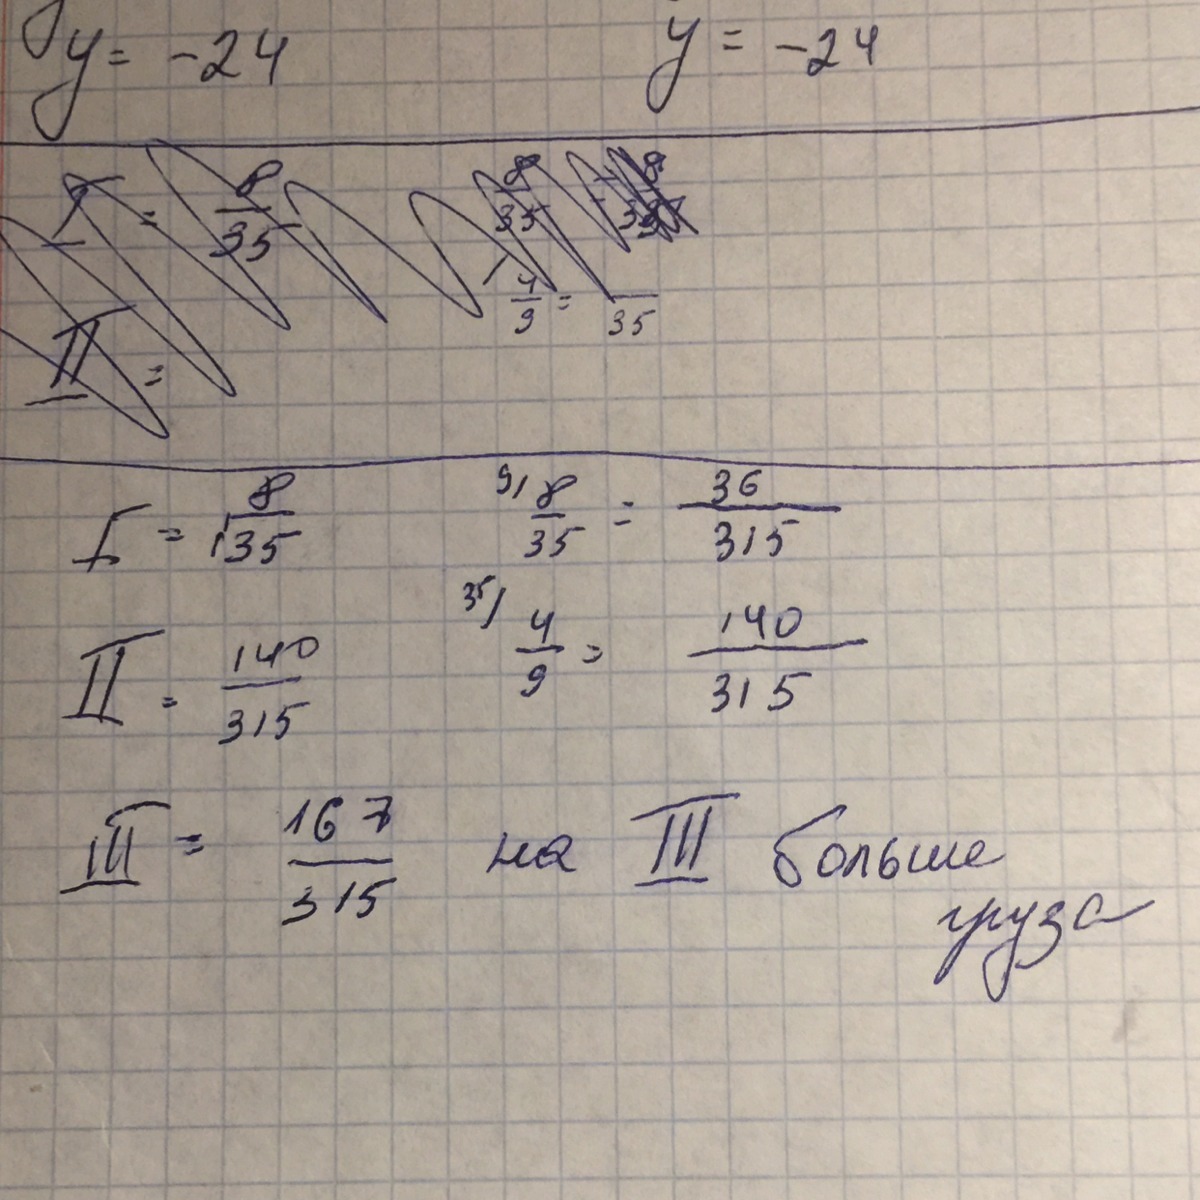 y = -24 y = -24
I = 8/35 8/35 - 8/35
4/9 = /35
II =
I = 8/35 9/ 8/35 = 36/315
II = 140/315 35/ 4/9 = 140/315
III = 167/315 на III больше
груза